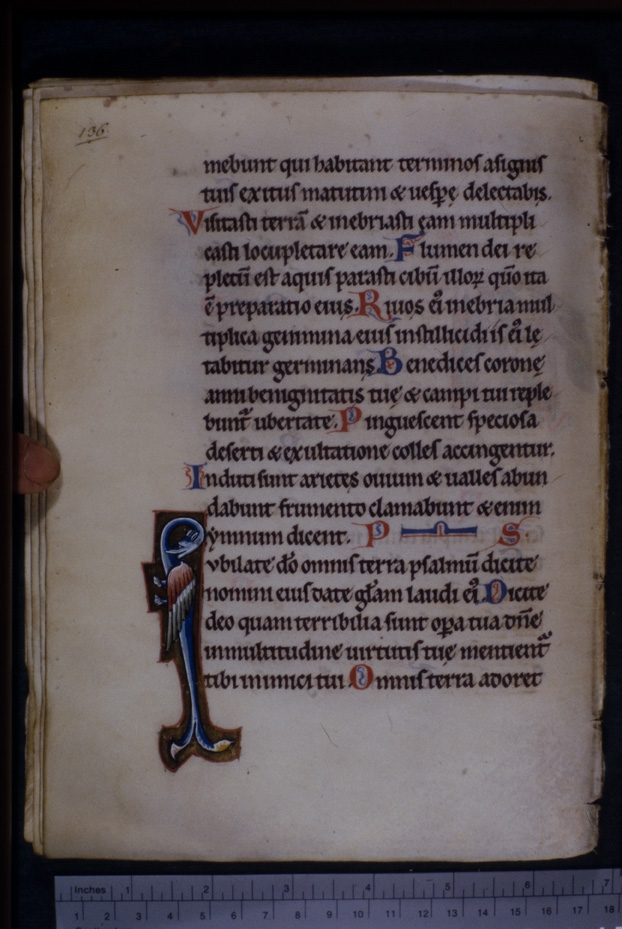 136.
mebunt qui habitant terminos asignis
tuis exitus matutini & uesp̱ę delectabis.
Visitasti terrā & inebriasti eam multipli
casti locupletare eam. Flumen dei re
pletū est aquis parasti cibū illoꝝ qūo ita
ē preparatio eius. Riuos ei᷒ inebria mul
tiplica genimina eius instillicidiis ei᷒ lę
tabitur germinans. Benedices coronę
anni benignitatis tuę & campi tui reple
bunt᷑ ubertate. Pinguescent speciosa
deserti & exultatione colles accingentur.
Induti sunt arietes ouium & ualles abun
dabunt frumento clamabunt & enim
ẏmnum dicent. P S.
Iubilate dō omnis terra psalmū dicite
nomini eius date gl̄am laudi ei᷒ Dicite
deo quam terribilia sunt oꝑa tua dn̄e
inmultitudine uirtutis tuę mentient᷑
tibi inimici tui. Omnis terra adoret
Inches 1 2 3 4 5 6 7
1 2 3 4 5 6 7 8 9 10 11 12 13 14 15 16 17 18